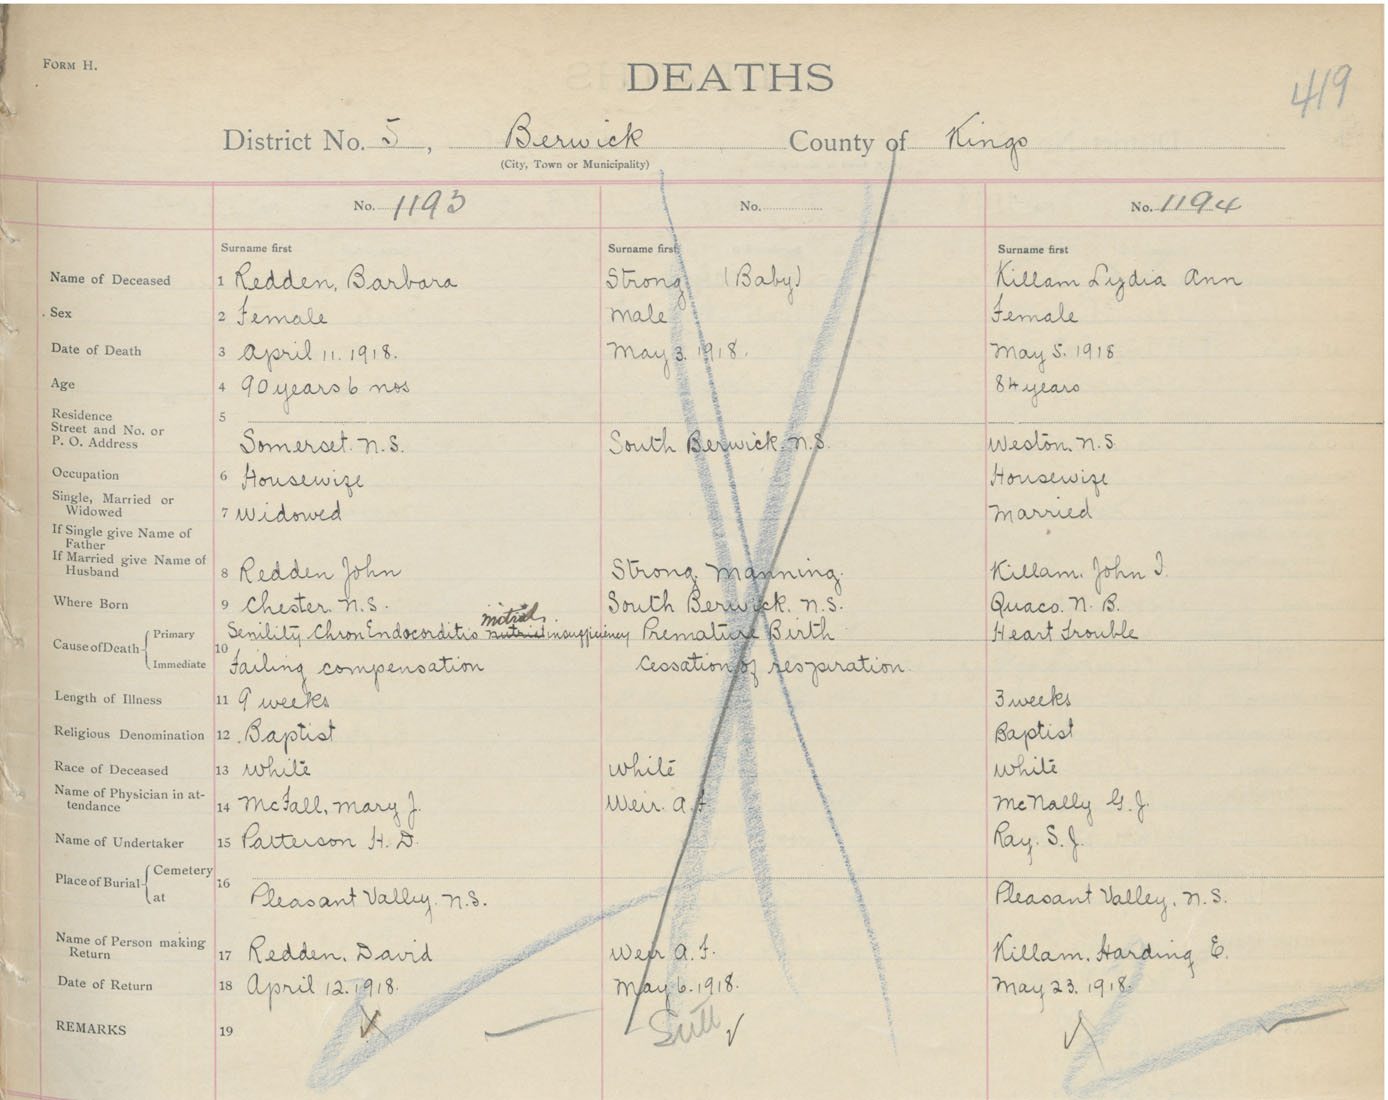 FORM H.
DEATHS
419
District No. 5, Berwick County of Kings
(City, Town or Municipality)
No. 1193 No. No. 1194
Surname first Surname first Surname first
Name of Deceased 1 Redden, Barbara Strong (Baby) Killam Lydia Ann
Sex 2 Female male Female
Date of Death 3 April 11. 1918. May 3. 1918. May 5. 1918
Age 4 90 years 6 mos 84 years
Residence 5
Street and No. or
P. O. Address Somerset. N.S. South Berwick. N.S. Weston. N.S.
Occupation 6 Housewife Housewife
Single, Married or
Widowed 7 Widowed Married
If Single give Name of
Father
If Married give Name of
Husband 8 Redden John Strong. Manning. Killam. John I.
Where Born 9 Chester. N.S. South Berwick. N.S. Quaco. N.B.
mitral
Cause of Death Primary 10 Senility. Chron Endocorditis insufficiency Premature Birth Heart Trouble
Immediate Failing compensation cessation of respiration.
Length of Illness 11 9 weeks 3 weeks
Religious Denomination 12 Baptist Baptist
Race of Deceased 13 white white white
Name of Physician in at-
tendance 14 McFall, Mary J. Weir. A. F. McNally G. J.
Name of Undertaker 15 Patterson H. D. Ray. S. J.
Place of Burial Cemetery 16
at Pleasant Valley. N.S. Pleasant Valley, N.S.
Name of Person making
Return 17 Redden, David Weir A. F. Killam, Harding E.
Date of Return 18 April 12. 1918. May 6. 1918. May 23. 1918.
REMARKS 19 Still